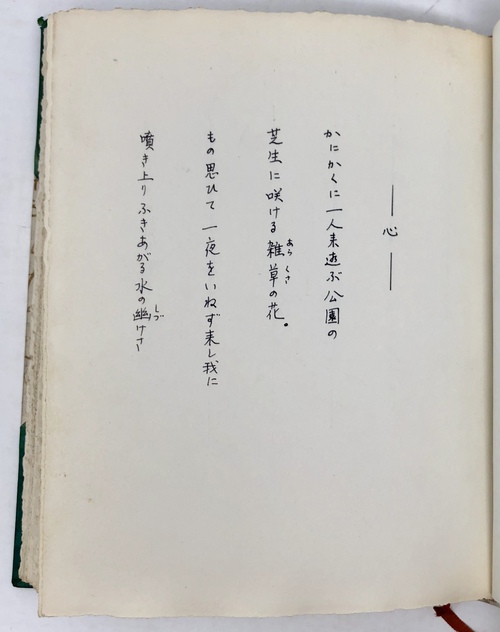 ― 心 ―
かにかくに一人来遊ぶ公園の
芝生に咲ける雑草の花。
あらくさ
もの思ひて一夜をいねず来し我に
噴き上りふきあがる水の幽けさ
しづ